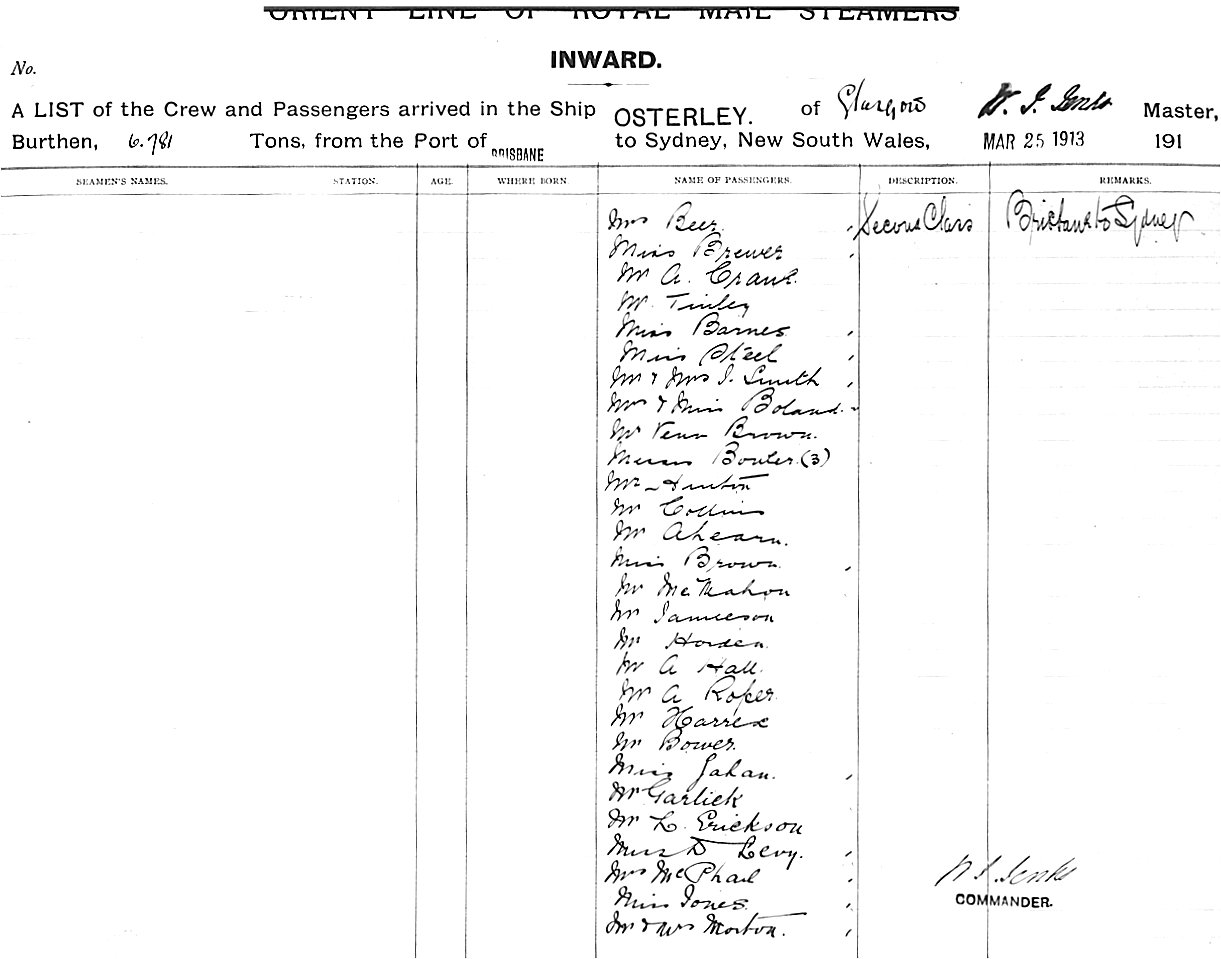 ORIENT LINE OF ROYAL MAIL STEAMERS
INWARD.
No.
A LIST of the Crew and Passengers arrived in the Ship OSTERLEY. of Glasgow W. J. Jenks Master,
Burthen, 6.781 Tons, from the Port of BRISBANE to Sydney, New South Wales, MAR 25 1913 191
SEAMEN'S NAMES. STATION. AGE. WHERE BORN. NAME OF PASSENGERS. DESCRIPTION. REMARKS.
Mrs Beer Second Class Brisbane to Sydney
Miss Brewer
Mr A. Crank
Mr Tinley
Miss Barnes
Miss Steel
Mr & Mrs J. Smith
Mrs & Miss Boland
Mr Venn Brown.
Messrs (3)
Mr Hinton
Mr Collins
Mr Ahearn.
Miss Brown
Mr McMahon
Mr Jamieson
Mr Horden
Mr A Hall.
Mr A Roper
Mr Harrex
Mr Bower.
Miss Gahan.
Mr Garlick
Mr L. Erickson
Miss D Levy.
Mrs McPhail
Miss Jones
Mr & Mrs Morton.
W J. Jenks
COMMANDER.